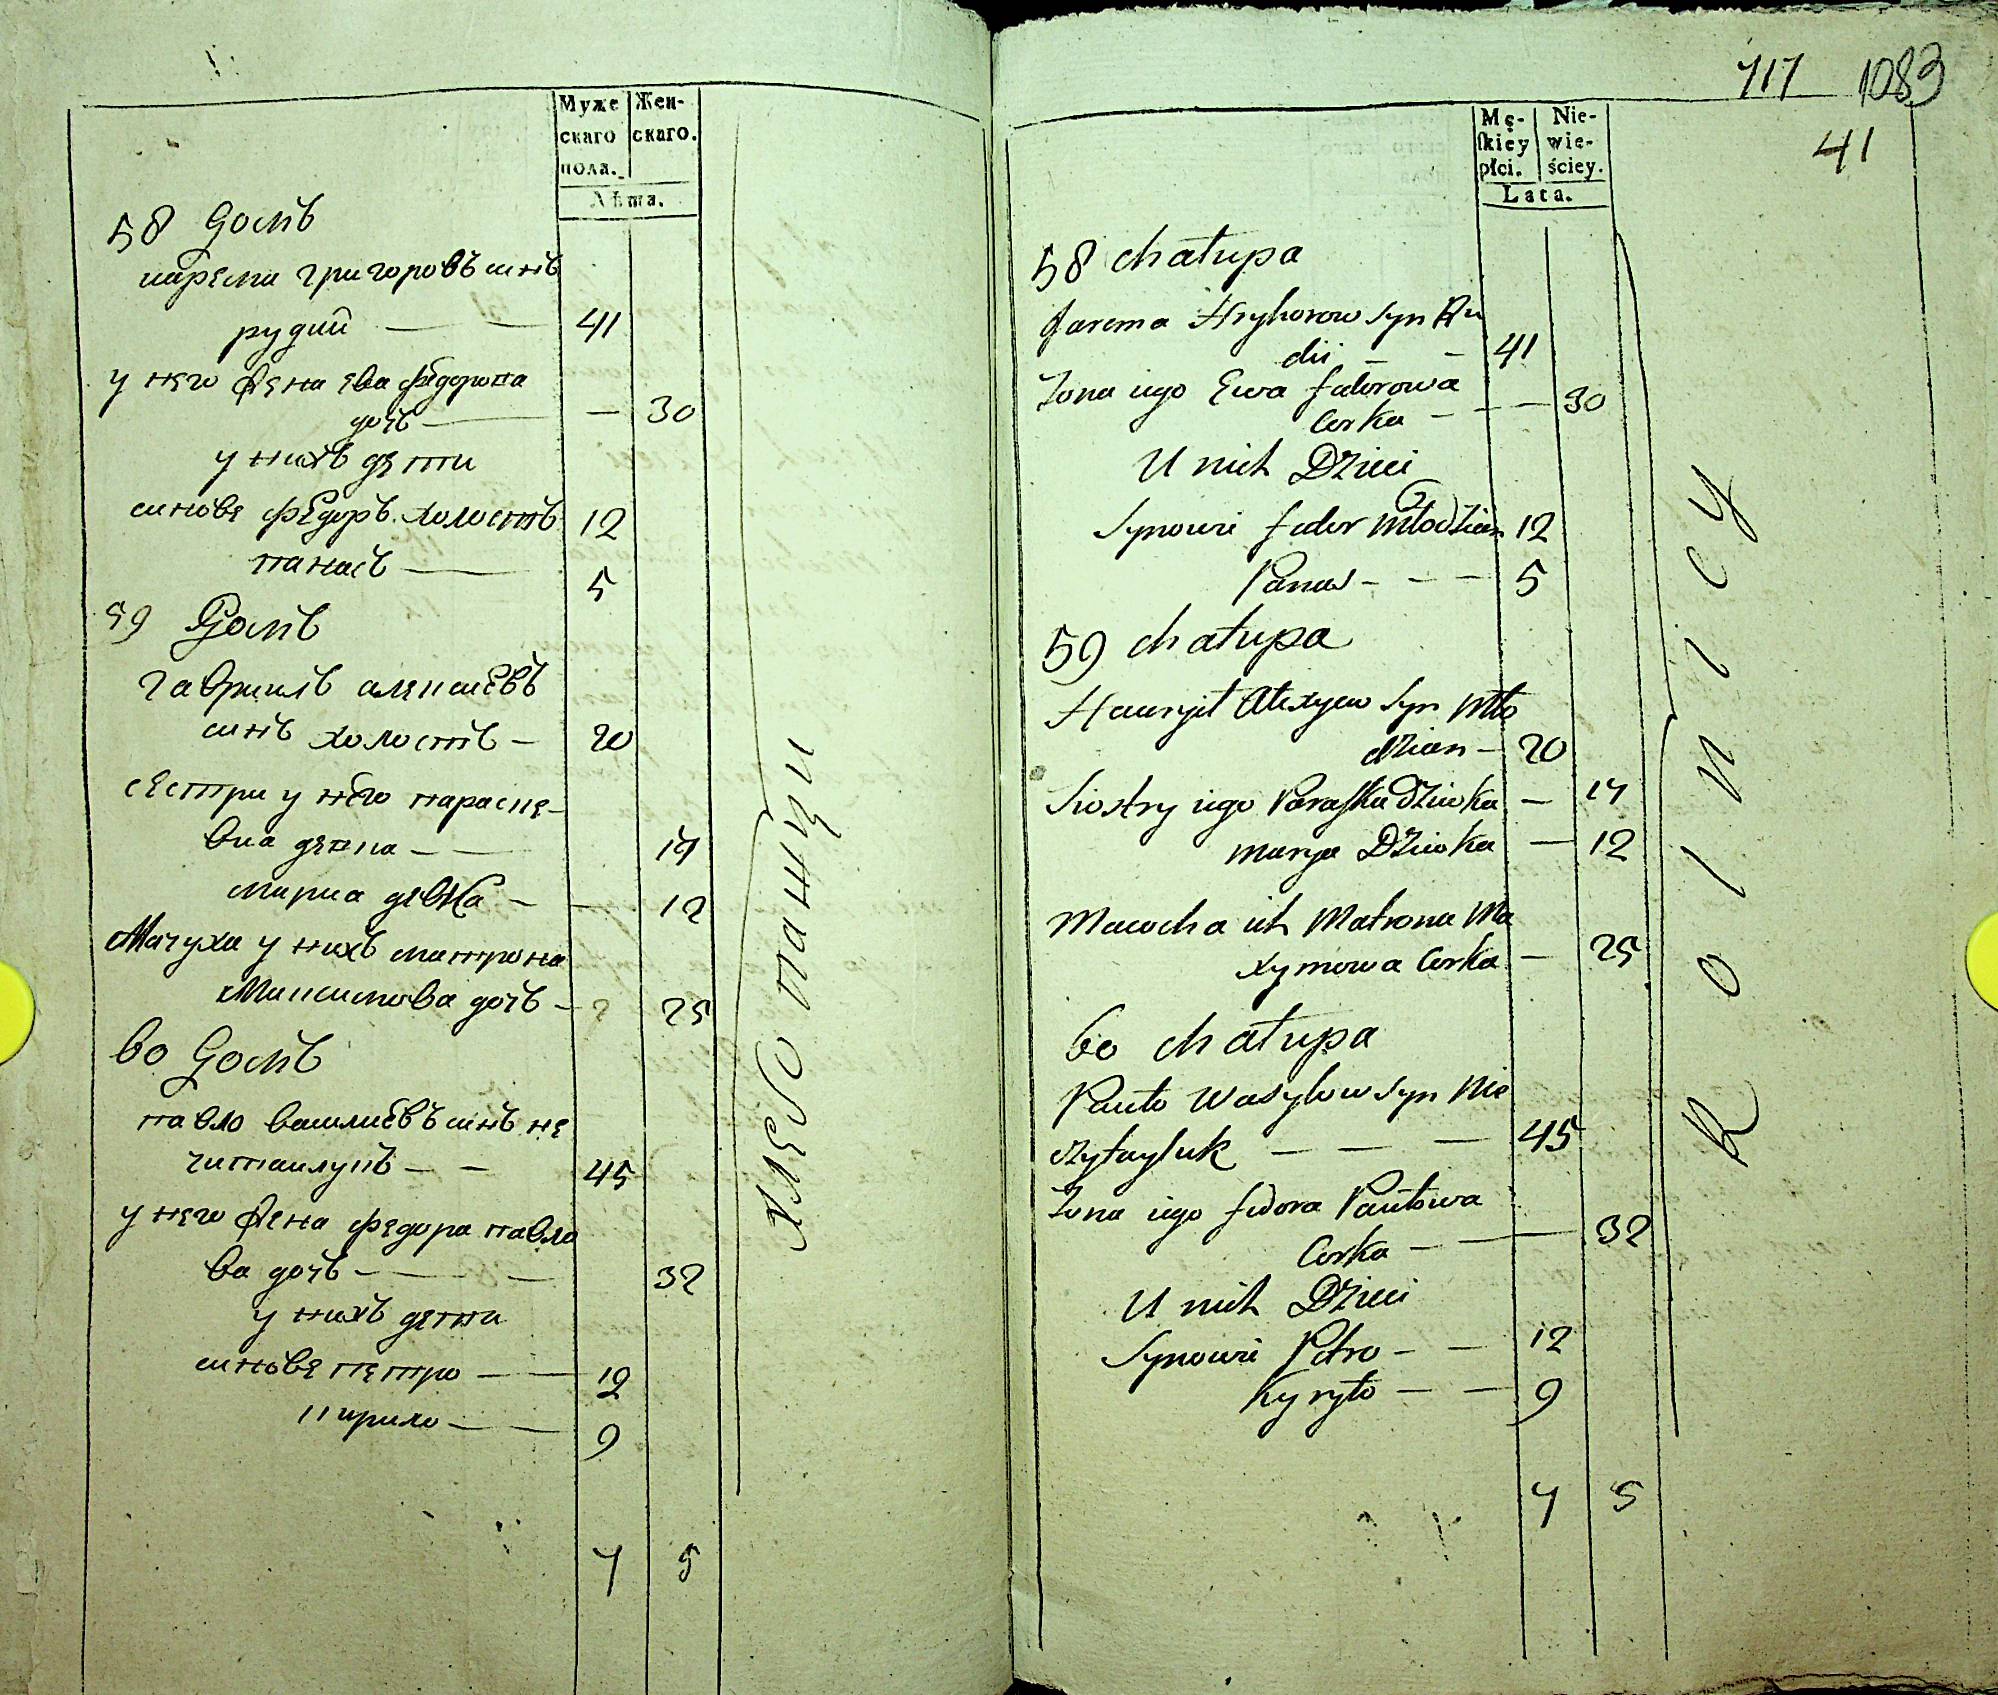 Муже
скаго
пола.
Жен-
скаго.
Лѣта.
58 домъ
иарема григоровъ синъ
рудий — — 41
у него жена ева федорова
дочь — — 30
у нихъ дети
синове федоръ холостъ 12
панасъ — 5
59 Домъ
гаврилъ алексеевъ
синъ холостъ — 20
сестри у него параске-
виа девка — 14
мариа девка — — 12
Мачуха у нихъ матрона
Максимова дочь — 25
60 Домъ
павло василиевъ синъ не
читаилукъ — — 45
у него жена федора павло
ва дочь — — 32
у нихъ дети
синове петро — — 12
кирило — — 9
7 5
хлебопашци
717 1083
41
Mę-
skiey
płci.
Nie-
wie-
ściey.
Lata.
58 chałupa
Jarema Hryhorow syn Ru
dii — — 41
Żona iego Ewa fedorowa
Corka — — — 30
U nich Dzieci
Synowie fedor Młodzian 12
Panas — — — 5
59 chałupa
Hawryił Alexyew Syn Mło
dzian — 20
Siostry iego Paraska Dziewka — 14
marya Dziewka — 12
Macocha ich Matrona Ma
xymowa Corka — 25
60 chałupa
Pawło Wasylow Syn Nie
czytayłuk — — — 45
Żona iego fedora Pawłowa
Corka — — — 32
U nich Dzieci
Synowie Petro — — 12
Kyryło — — 9
7 5
Rolnicy